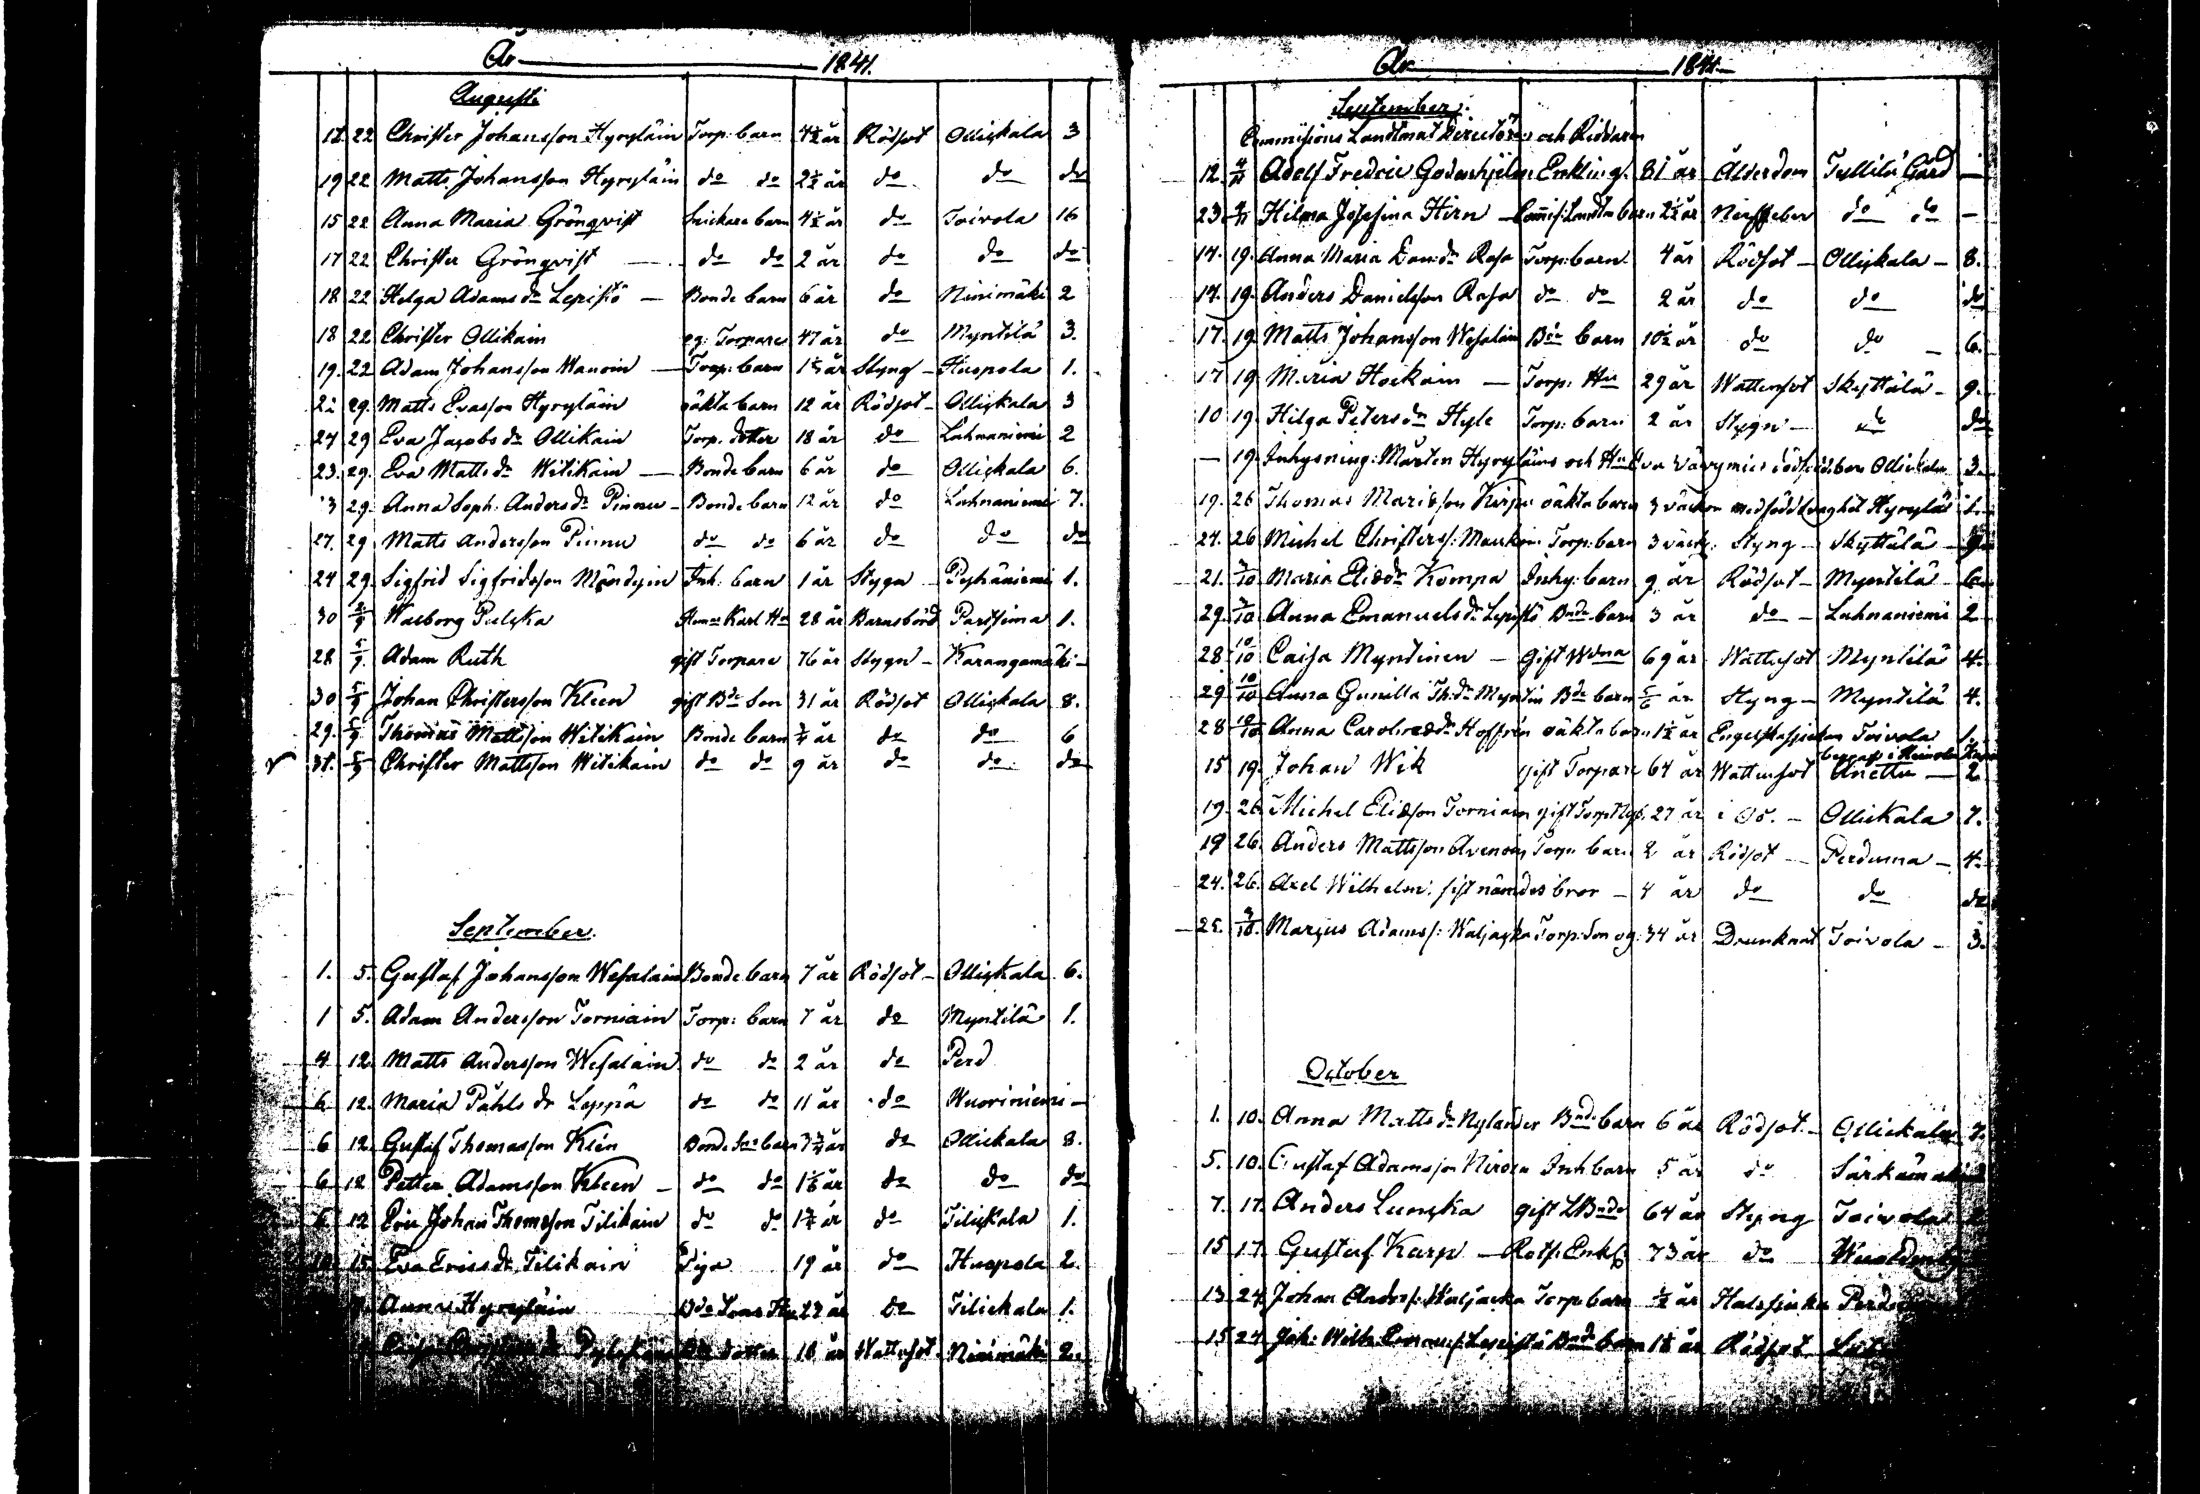 År 1841.
Augusti
18 22 Christer Johansson Hyryläin Torp: barn 4½ år Rödsot Ollickala 3
19 22 Matts Johansson Hyryläin do do 2½ år do do do
15 22 Anna Maria Grönqvist Snickare barn 4½ år do Toivola 16
17 22 Christer Grönqvist do do 2 år do do do
18 22 Helga Adams dr Lepistö — Bonde barn 6 år do Ninimäki 2
18 22 Christer Ollikain eg: Torpare 47 år do Myntilä 3.
19. 22 Adam Johansson Manoin — Torp: barn år Styng — Huspola 1.
22 29. Matts Evasson Hyryläin oäkta barn 12 år Rödsot — Ollickala 3
27 29 Eva Jacobs dr Ollikain Torp. dotter 18 år do Lahnaniemi 2
23. 29. Eva Matts dr Witikain — Bonde barn 6 år do Ollickala 6.
29. Anna Soph. Anders dr Pinnu — Bonde barn 12 år do Lahnaniemi 7.
27. 29 Matts Andersson Pinnu do do 6 år do do do
24 29. Sigfrid Sigfridsson Mändyin Inh: barn 1 år Stygn — Pyhäniemi 1.
30 5/9 Walborg Pulcka Karl Hu 28 år Barnsbörd 1.
28 5/9. Adam Ruth gift Torpare 76 år Stygn — Karangamäki —
30 5/9 Johan Christersson Kleen gift Bde Son 31 år Rödsot Ollickala 8.
29. 5/9 Thomas Mattsson Witikain Bonde barn ¾ år do do 6
31. 5/9 Christer Mattsson Witikain do do 9 år do do do
September.
1. 5. Gustaf Johansson Wesalain Bonde barn 7 år Rödsot — Ollickala 6.
1 5. Adam Andersson Torniain Torp: barn 7 år do Myntilä 1.
4 12. Matts Andersson Wesalain do do 2 år do Perd
6 12. Maria Påhls dr Leppä do do 11 år do Wuoriniemi —
6 12. Gustaf Thomasson Klén Bonde Sons barn 3¾ år do Ollickala 8.
6 12 Petter Adamsson Kleen — do do år do do do
12 Eric Johan Thomsson Tilikain do do år do Tilickala 1.
15. Eva Erics dr Tilikain Piga 19 år do Huspola 2.
Anna Hyryläin Bde Sons Hu 27 år do Tilickala 1.
dotter 18 år Wattusot. Ninimäki 2.
År 1841
September.
Commissions Landtmät Directören och Riddaren
12. 4/11 Adolf Fredric Godenhjelm Enkling. 81 år Ålderdom Tullila Gård —
23. 4/11 Hilma Josefina Hirn — Commis: Landtm barn 2½ år Nerffeber do do —
14. 19. Anna Maria Dan: dr Rasa Torp: barn 4 år Rödsot — Ollickala — 8.
14. 19. Anders Danielsson Rasa do do 2 år do do do
17. 19. Matts Johansson Wesalain Bde barn 10½ år do do — 6.
17 19. Maria Hockain — Torp: Hu 29 år Wattusot Skyttälä — 9.
10 19. Hilga Peters dr Hyle Torp: barn 2 år Stygn — do do
— 19. Inhysning: Mårten Hyryläins och Hu Eva dödfödt barn Ollickala 3.
19. 26 Thomas oäkta barn 3 väckor medfödd svaghet Hyrylä 1.
24. 26 Michel Christers: Mankoin Torp: barn 3 väck: Styng — Skyttälä
21. 3/10 Maria Elias dr Kompa Inhy: barn 9 år Rödsot — Myntilä 6
29. 3/10 Anna Emanuels dr Lepistö Bnde barn 3 år do — Lahnaniemi 2
28 10/10 Caisa Myntinen — Gift Wärdna 69 år Wattusot Myntilä 4.
29 10/10 Anna Gunilla Th: dr Myntin Bde barn 5/6 år Styng — Myntilä 4.
28 10/10 Anna Carolina dr Hoffrén oäkta barn 1½ år Engelska sjukan Toivola 1.
begrafs i Heinola
15 19. Johan Wik gift Torpare 64 år Wattusot Anettu — 2
19. 26. Michel Eliasson Torniain gift Torp 27 år i do. — Ollickala 7.
19 26. Anders Mattsson Avenoin Torp: barn 2 år Rödsot — Perduma — 4.
24. 26. Axel Wilhelm: sistnämdes bror — 4 år do do do
25. 3/10. Marcus Adams: Waljacka Torp: Son og: 34 år Drunknat Toivola — 3.
October
1. 10. Anna Matts dr Nylander Bnde barn 6 år Rödsot — Ollickala 7.
5. 10. Gustaf Adamsson Niroin Inh barn 5 år do Särkämäki
7. 17. Anders Lumcka gift LBnde 64 år Styng Toivola 2
15 17. Gustaf Karp — Rotf: Enkl: 73 år do
13 24. Johan Anders: Waljacka Torp: barn ½ år Halssjuka
15 24. Joh: Wilh: Eman: Lepistö Bnde barn år Rödsot